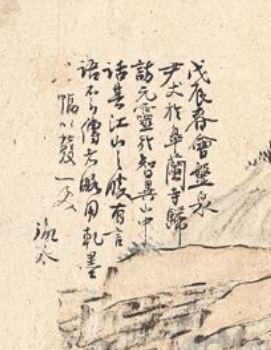 戊辰春會盤泉
尹丈於皐蘭寺歸
訪元靈於智異山中
話其江山之勝有言
語不可傳者略用乾墨
以發一笑